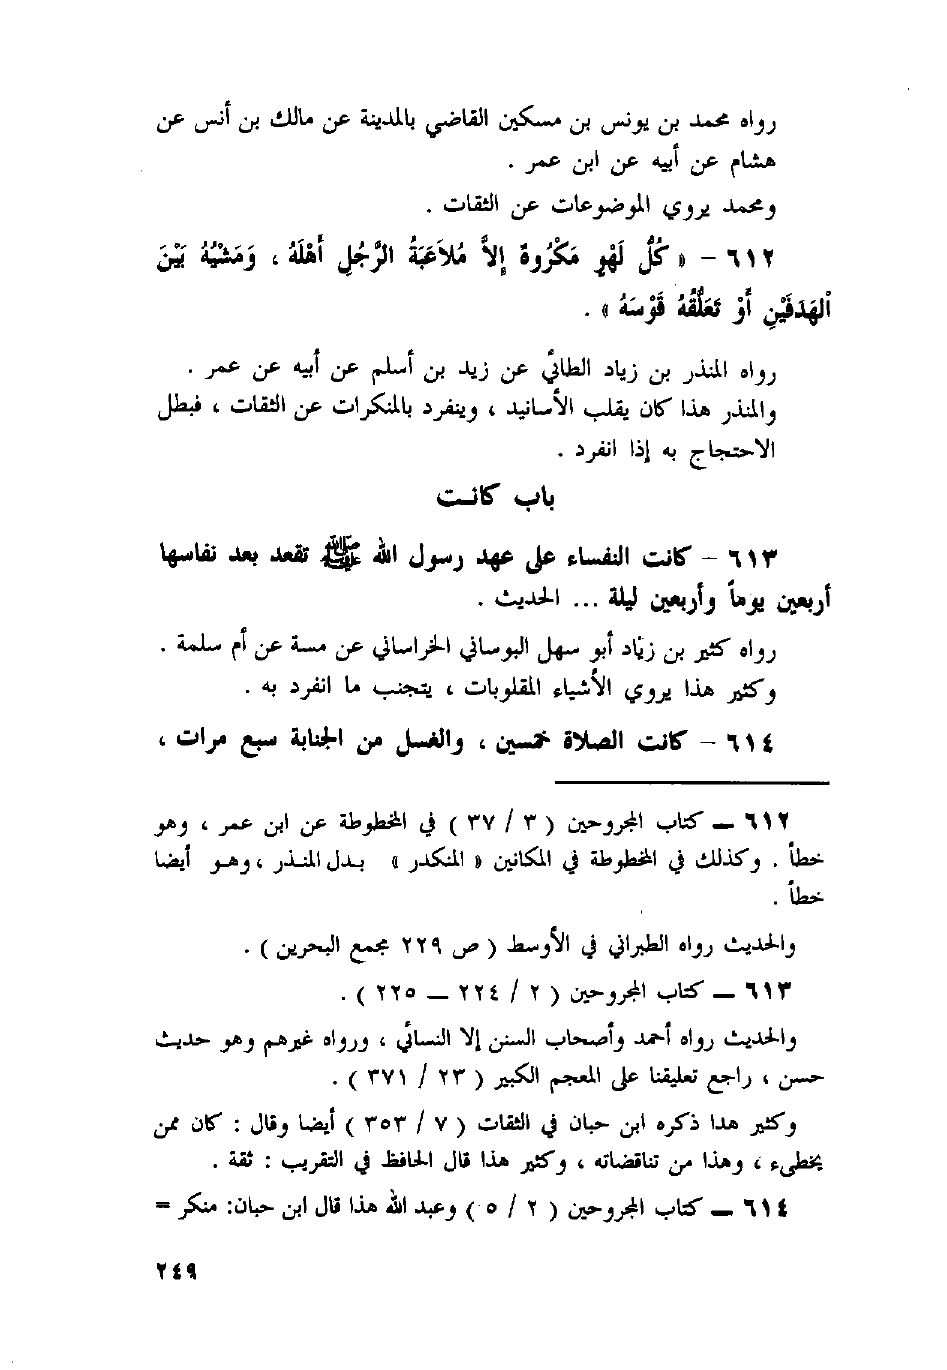 رواه محمد بن يونس بن مسكين القاضي بالمدينة عن مالك بن أنس عن
هشام عن أبيه عن ابن عمر .
ومحمد يروي الموضوعات عن الثقات .
٦١٢ – « كُلُّ لَهْوٍ مَكْرُوهٌ إِلاَّ مُلاَعَبَةُ الرَّجُلِ أَهْلَهُ ، وَمَشْيُهُ بَيْنَ
اْلهَدَفَيْنِ أَوْ تَعَلُّقُهُ قَوْسَهُ » .
رواه المنذر بن زياد الطائي عن زيد بن أسلم عن أبيه عن عمر .
والمنذر هذا كان يقلب الأسانيد ، وينفرد بالمنكرات عن الثقات ، فبطل
الاحتجاج به إذا انفرد .
باب كانت
٦١٣ – كانت النفساء على عهد رسول الله ﷺ تقعد بعد نفاسها
أربعين يوماً وأربعين ليلة ... الحديث .
رواه كثير بن زياد أبو سهل البوساني الخراساني عن مسة عن أم سلمة .
وكثير هذا يروي الأشياء المقلوبات ، يتجنب ما انفرد به .
٦١٤ – كانت الصلاة خمسين ، والغسل من الجنابة سبع مرات ،
٦١٢ – كتاب المجروحين ( ٣ / ٣٧ ) في المخطوطة عن ابن عمر ، وهو
خطأ . وكذلك في المخطوطة في المكانين « المنكدر » بدل المنذر ، وهو أيضا
خطأ .
والحديث رواه الطبراني في الأوسط ( ص ٢٢٩ مجمع البحرين ) .
٦١٣ – كتاب المجروحين ( ٢ / ٢٢٤ – ٢٢٥ ) .
والحديث رواه أحمد وأصحاب السنن إلا النسائي ، ورواه غيرهم وهو حديث
حسن ، راجع تعليقنا على المعجم الكبير ( ٢٣ / ٣٧١ ) .
وكثير هذا ذكره ابن حبان في الثقات ( ٧ / ٣٥٣ ) أيضا وقال : كان ممن
يخطىء ، وهذا من تناقضاته ، وكثير هذا قال الحافظ في التقريب : ثقة .
٦١٤ – كتاب المجروحين ( ٢ / ٥ ) وعبد الله هذا قال ابن حبان: منكر =
٢٤٩